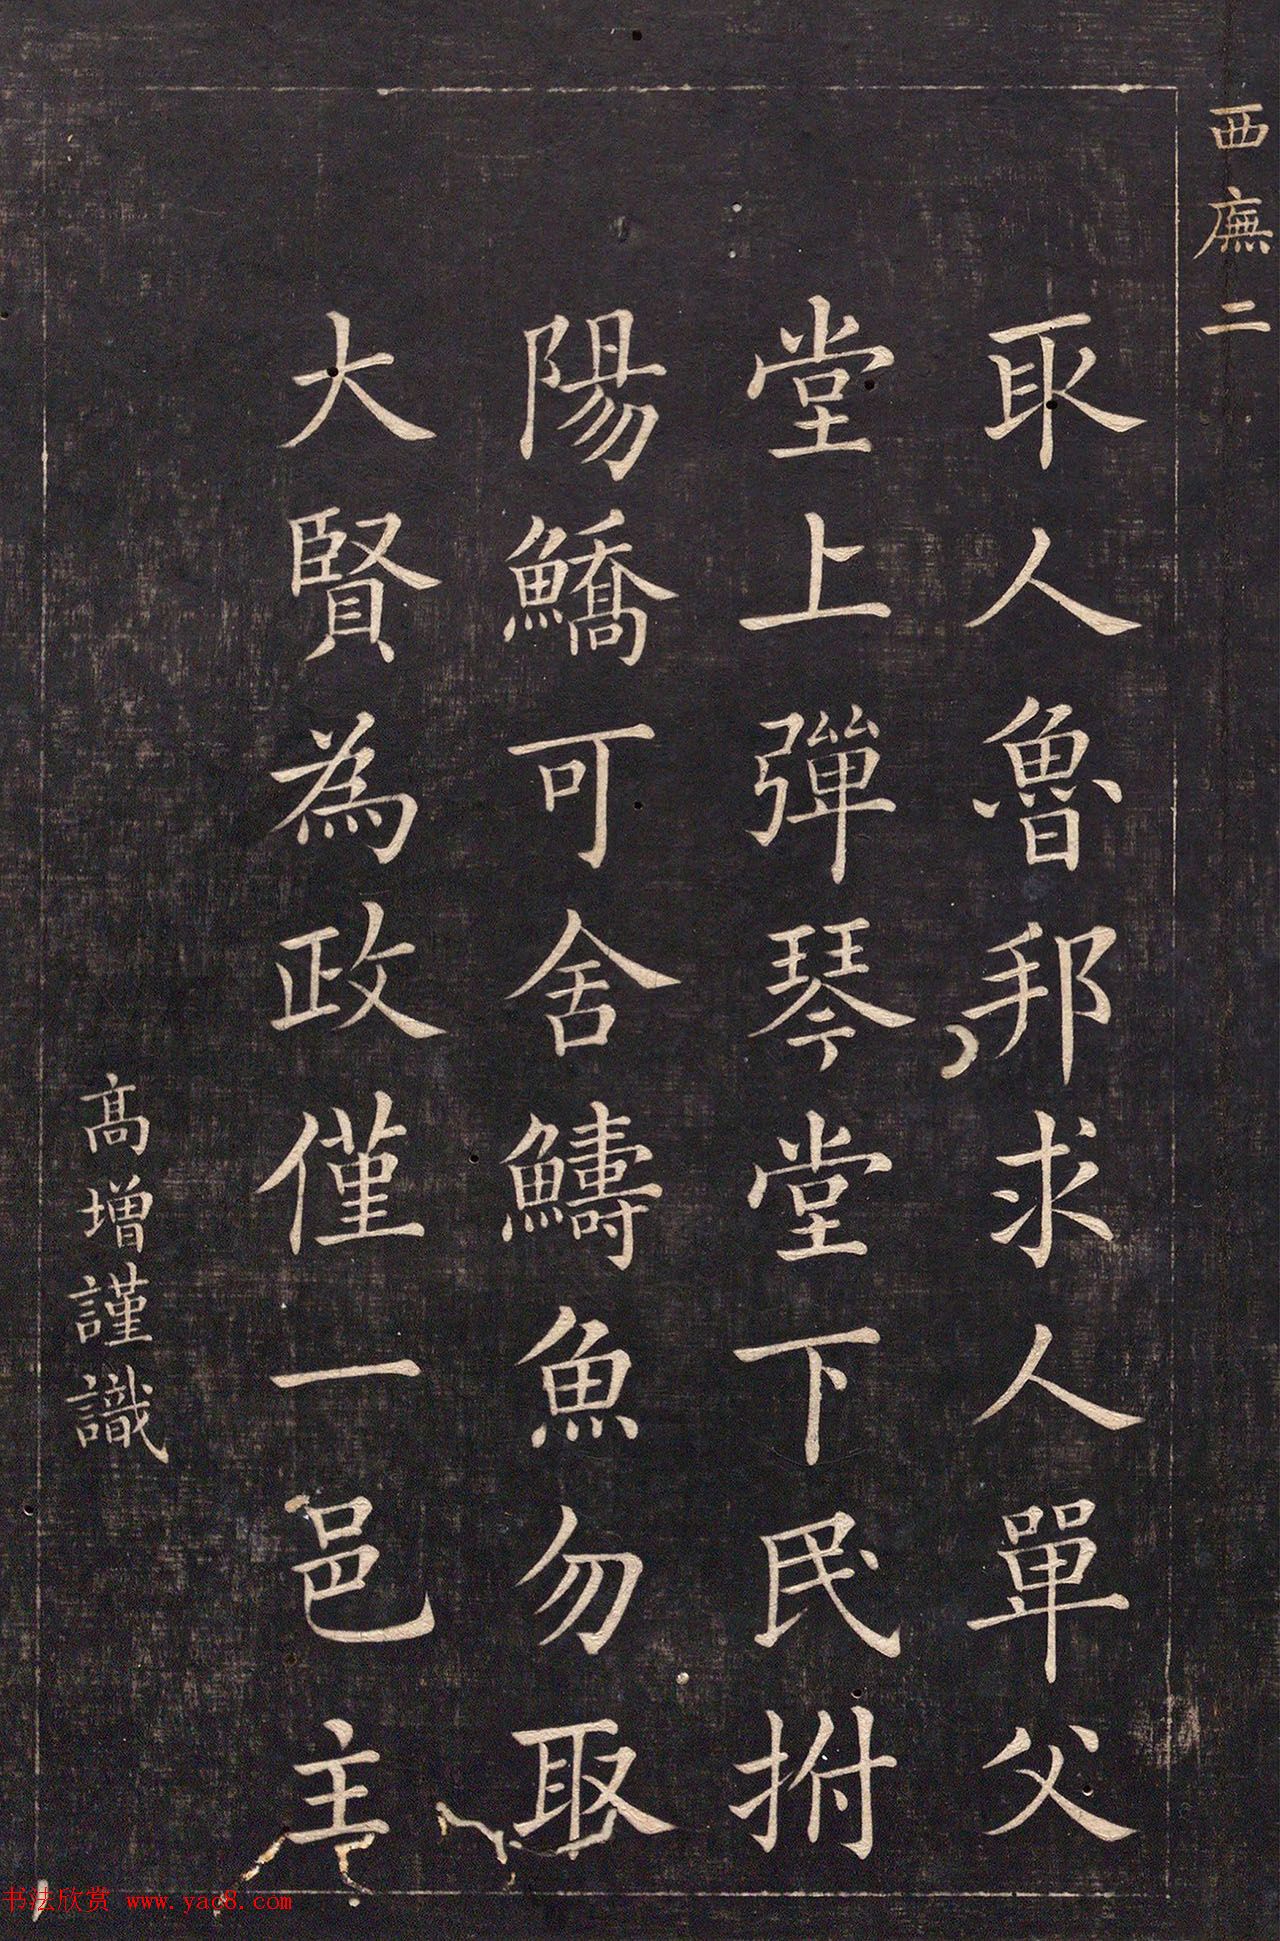 西廡二
取人魯邦求人單父
堂上彈琴堂下民拊
陽鱎可舍鱨魚勿取
大賢為政僅一邑主
高增謹識
书法欣赏 www.yac8.com